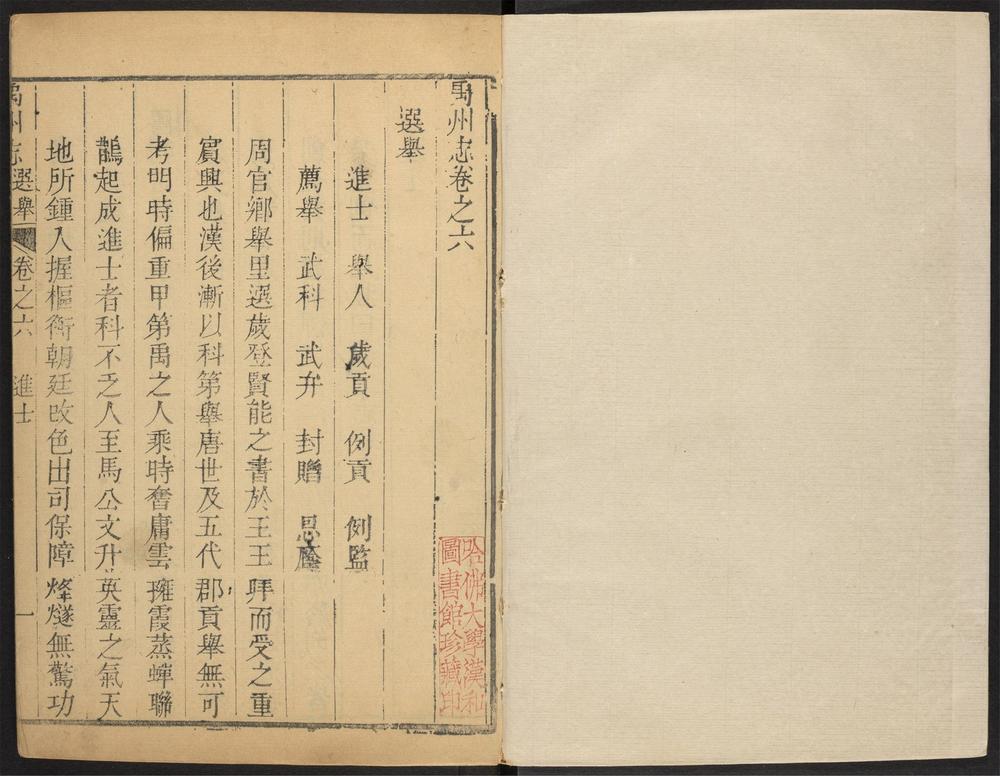 禹州志卷之六
選舉
進士 舉人 歲貢 例貢 例監
薦舉 武科 武弁 封贈 恩廕
周官鄉舉里選歲登賢能之書於王王拜而受之重
賓興也漢後漸以科第舉唐世及五代郡貢舉無可
考明時偏重甲第禹之人乘時奮庸雲擁霞蒸蟬聯
鵲起成進士者科不乏人至馬公文升英靈之氣天
地所鍾入握樞衡朝廷改色出司保障烽燧無驚功
禹州志選舉 卷之六 進士 一
哈佛大學漢和
圖書館珍藏印